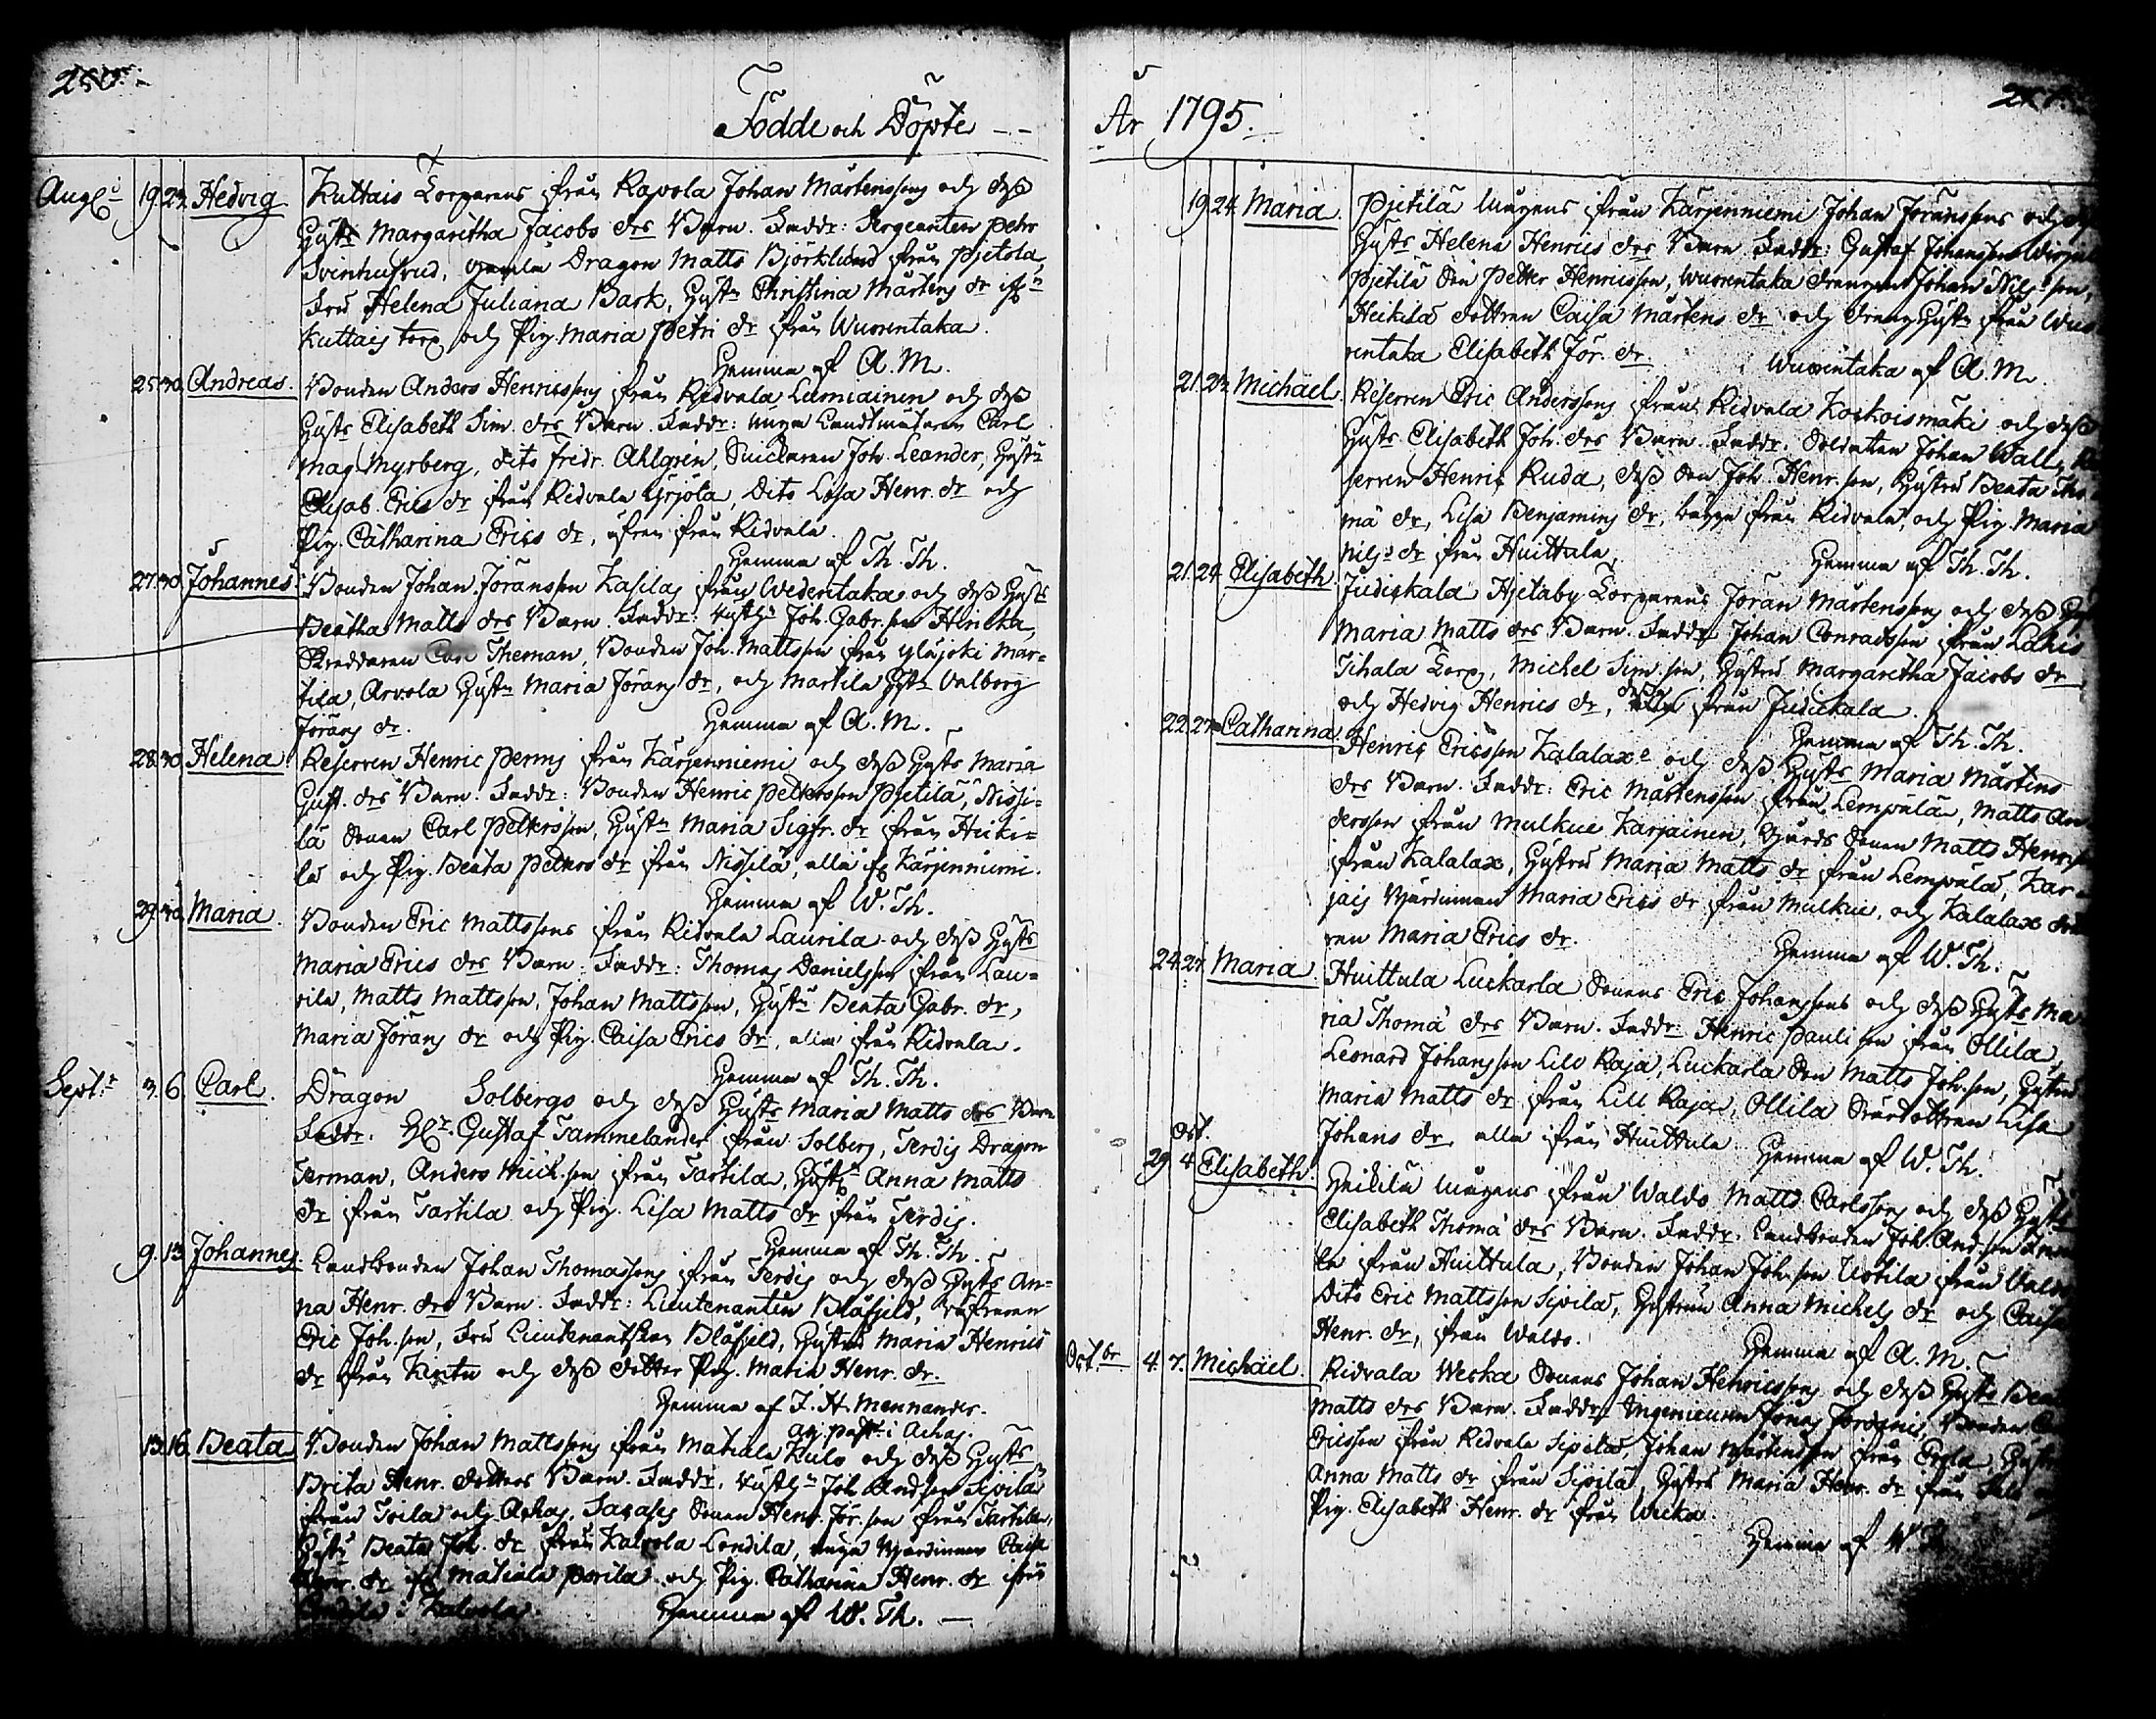 250.
Födde och Döpte --
Aug: 19. 23. Hedvig Kuttais Torparens ifrån Rapola Johan Mårtenssons och dess
Hustr. Margaretha Jacobs dr Barn. Faddr: Sergeanten Petr
Svinhufvud, gamla Dragon Matts Björklund ifrån Pjetola,
Fru Helena Juliana Bark, Hustr. Christina Mårtens dr ifn
Kuttais torp och Pig. Maria Petri dr ifrån Wuorentaka.
Hemma af A. M.
25. 30. Andreas. Bonden Anders Henricssons ifrån Ridvala Lamiainen och dess
Hustr Elisabeth Sim. drs Barn. Faddr: unga Landtmätaren Carl
Mag. Myrberg, Dito Fredr. Ahlgrén, Snickaren Joh. Leander, Hustr
Elisab. Erics dr ifrån Ridvala Yrjöla, Dito Lisa Henr. dr och
Pig. Catharina Erics dr, äfven ifrån Ridvala.
Hemma af Th. Th.
27. 30. Johannes: Bonden Johan Jöransson Kasilas ifrån Wedentaka och dess Hustr
Beatha Matts drs Barn. Faddr: Joh. Gabr. son
Skreddaren Carl Theman, Bonden Joh. Mattsson ifrån Yläjoki Mar-
tila, Arvola Hustr Maria Jörans dr, och Martila Hustr Valborg
Jörans dr. Hemma af A. M.
28. 30. Helena Reserven Henric Penns ifrån Kärjenniemi och dess Hustr Maria
Gust. drs Barn. Faddr: Bonden Henric Pettersson Pjetilä, Nissi-
lä Sonen Carl Pettersson, Hustr Maria Sigfr. dr ifrån Heiki-
lä och Pig. Beata Petters dr ifrån Nissilä, alla if. Kärjenniemi.
Hemma af W. Th.
29. 30. Maria. Bonden Eric Mattssons ifrån Ridvala Laurila och dess Hustrs
Maria Erics drs Barn: Faddr: Thomas Danielsson ifrån Lau-
rila, Matts Mattsson, Johan Mattsson, Hustr Beata Gabr. dr,
Maria Jörans dr och Pig. Caisa Erics dr, alla ifrån Ridvala.
Hemma af Th. Th.
Sept:r 3. 6. Carl. Dragon Solbergs och dess Hustr Maria Matts drs Barn
Faddr. Gustaf Tammelander ifrån Solberg, Terdis Dragon
Terman, Anders Mick. son ifrån Tartila, Hustr Anna Matts
dr ifrån Tartila och Pig. Lisa Matts dr ifrån Terdis.
Hemma af Th. Th.
9. 13. Johannes Landbonden Johan Thomassons ifrån Terdis och dess Hustrs An-
na Henr. drs Barn. Faddr: Lieutenanten Blåfjeld,
Eric Joh. son, Fru Lieutenantskan Blåfjeld, Hustru Maria Henrics
dr ifrån Kerttu och dess dotter Pig. Maria Henr. dr.
Hemma af J. H. Mennander.
i Achas.
13. 16. Beata Bonden Johan Mattssons ifrån Matkala Kulo och dess Hustrs
Brita Henr. dotters Barn. Faddr. Joh Andson Sipilä
ifrån Toila och Achas, Sarases Sonen Henr. Jör. son ifrån Tartila,
Hustr Beata Joh. dr ifrån Kalvola Londila, unga Wärdinnan Caisa
Henr. dr if. Matkala Porila och Pig. Catharina Henr. dr ifrån
i Kalvola. Hemma af W. Th. —
År 1795.
19. 24. Maria. Pjetilä ifrån Kärjenniemi Johan Jöranssons och dess
Hustrs Helena Henrics drs Barn. Faddr: Gustaf Johansson
Pjetilä Son Petter Henricsson, Wuorentaka drengen Johan Nils son,
Heikilä dottren Caisa Mårtens dr och dreng Hustr ifrån Wuo-
rentaka Elisabeth Jör. dr. Wuorentaka af A. M.
21. 24. Michael. Reserven Eric Anderssons ifrån Ridvala Koskoismäki och dess
Hustr Elisabeth Joh. drs Barn. Faddr. Soldaten Johan Wall, Re-
serven Henric Ruda, dess Son Joh. Henr. son, Hustru Beata Tho-
mä dr, Lisa Benjamins dr, begge ifrån Ridvala, och Pig. Maria
Nils dr ifrån Huittula. Hemma af Th. Th.
21. 24. Elisabeth. Judickala Hjetaby Torparens Jöran Mårtenssons och dess Hustr
Maria Matts drs Barn. Faddr: Johan Conradsson ifrån Lahis
Tihala Torp, Michel Sim. son, Hustru Margaretha Jacobs dr
och Hedvig Henrics dr, ifrån Judickala.
Hemma af Th. Th.
22. 27. Catharina Henric Ericsson Kalalax och dess Hustrs Maria Mårtens
drs Barn. Faddr: Eric Mårtensson ifrån Lempälä, Matts An-
dersson ifrån Mulkue Karjainen, Gårds Sonen Matts Henrics
ifrån Kalalax, Hustru Maria Matts dr ifrån Lempälä, Kar-
jais Wärdinnan Maria Erics dr ifrån Mulkue, och Kalalax
ren Maria Erics dr. Hemma af W. Th.
24. 27. Maria. Huittula Luckarla Sonens Eric Johanssons och dess Hustrs Ma-
ria Thomä drs Barn. Faddr: Henric Pauli son ifrån Ollila,
Leonard Johansson Lill Raja, Luckarla Son Matts Joh. son, Hustru
Maria Matts dr ifrån Lill Raja, Ollila Sondottren Lisa
Johans dr, alla ifrån Huittula. Hemma af W. Th.
Oct.
29 4 Elisabeth. Heikilä ifrån Waldo Matts Carlssons och dess Hustrs
Elisabeth Thomä drs Barn. Faddr. Landbonden Joh. And. son
ifrån Huittula, Bonden Johan Joh. son Uotila ifrån Waldo,
Dito Eric Mattsson Sipilä, Hustrun Anna Michels dr och Caisa
Henr. dr, ifrån Waldo. Hemma af A. M.
Oct.br 4. 7. Michael. Ridvala Weska Sonens Johan Henricssons och dess Hustr Beata
Matts drs Barn. Faddr: Ingenieuren Jonas, Bonden
Ericsson ifrån Ridvala Sipilä, Johan Mårtensson ifrån Erola, Hustr
Anna Matts dr ifrån Sipilä, Hustru Maria Henr. dr ifrån
Pig. Elisabeth Henr. dr ifrån Wecka.
Hemma af W. Th.